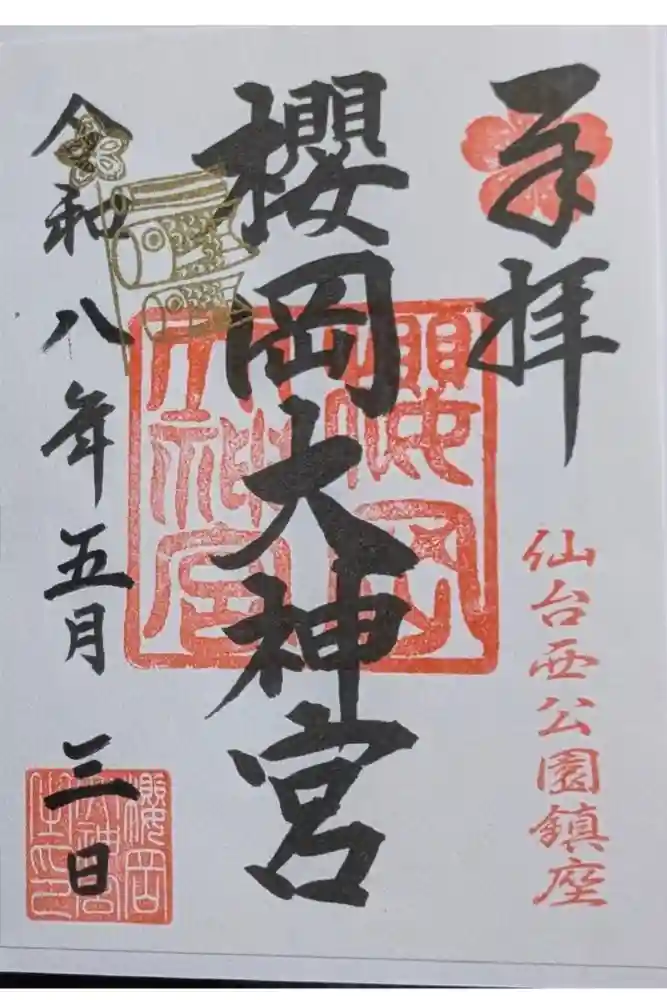 奉拝
仙台西公園鎮座
櫻岡大神宮
櫻岡
大神宮
令和八年五月三日
櫻岡
大神宮